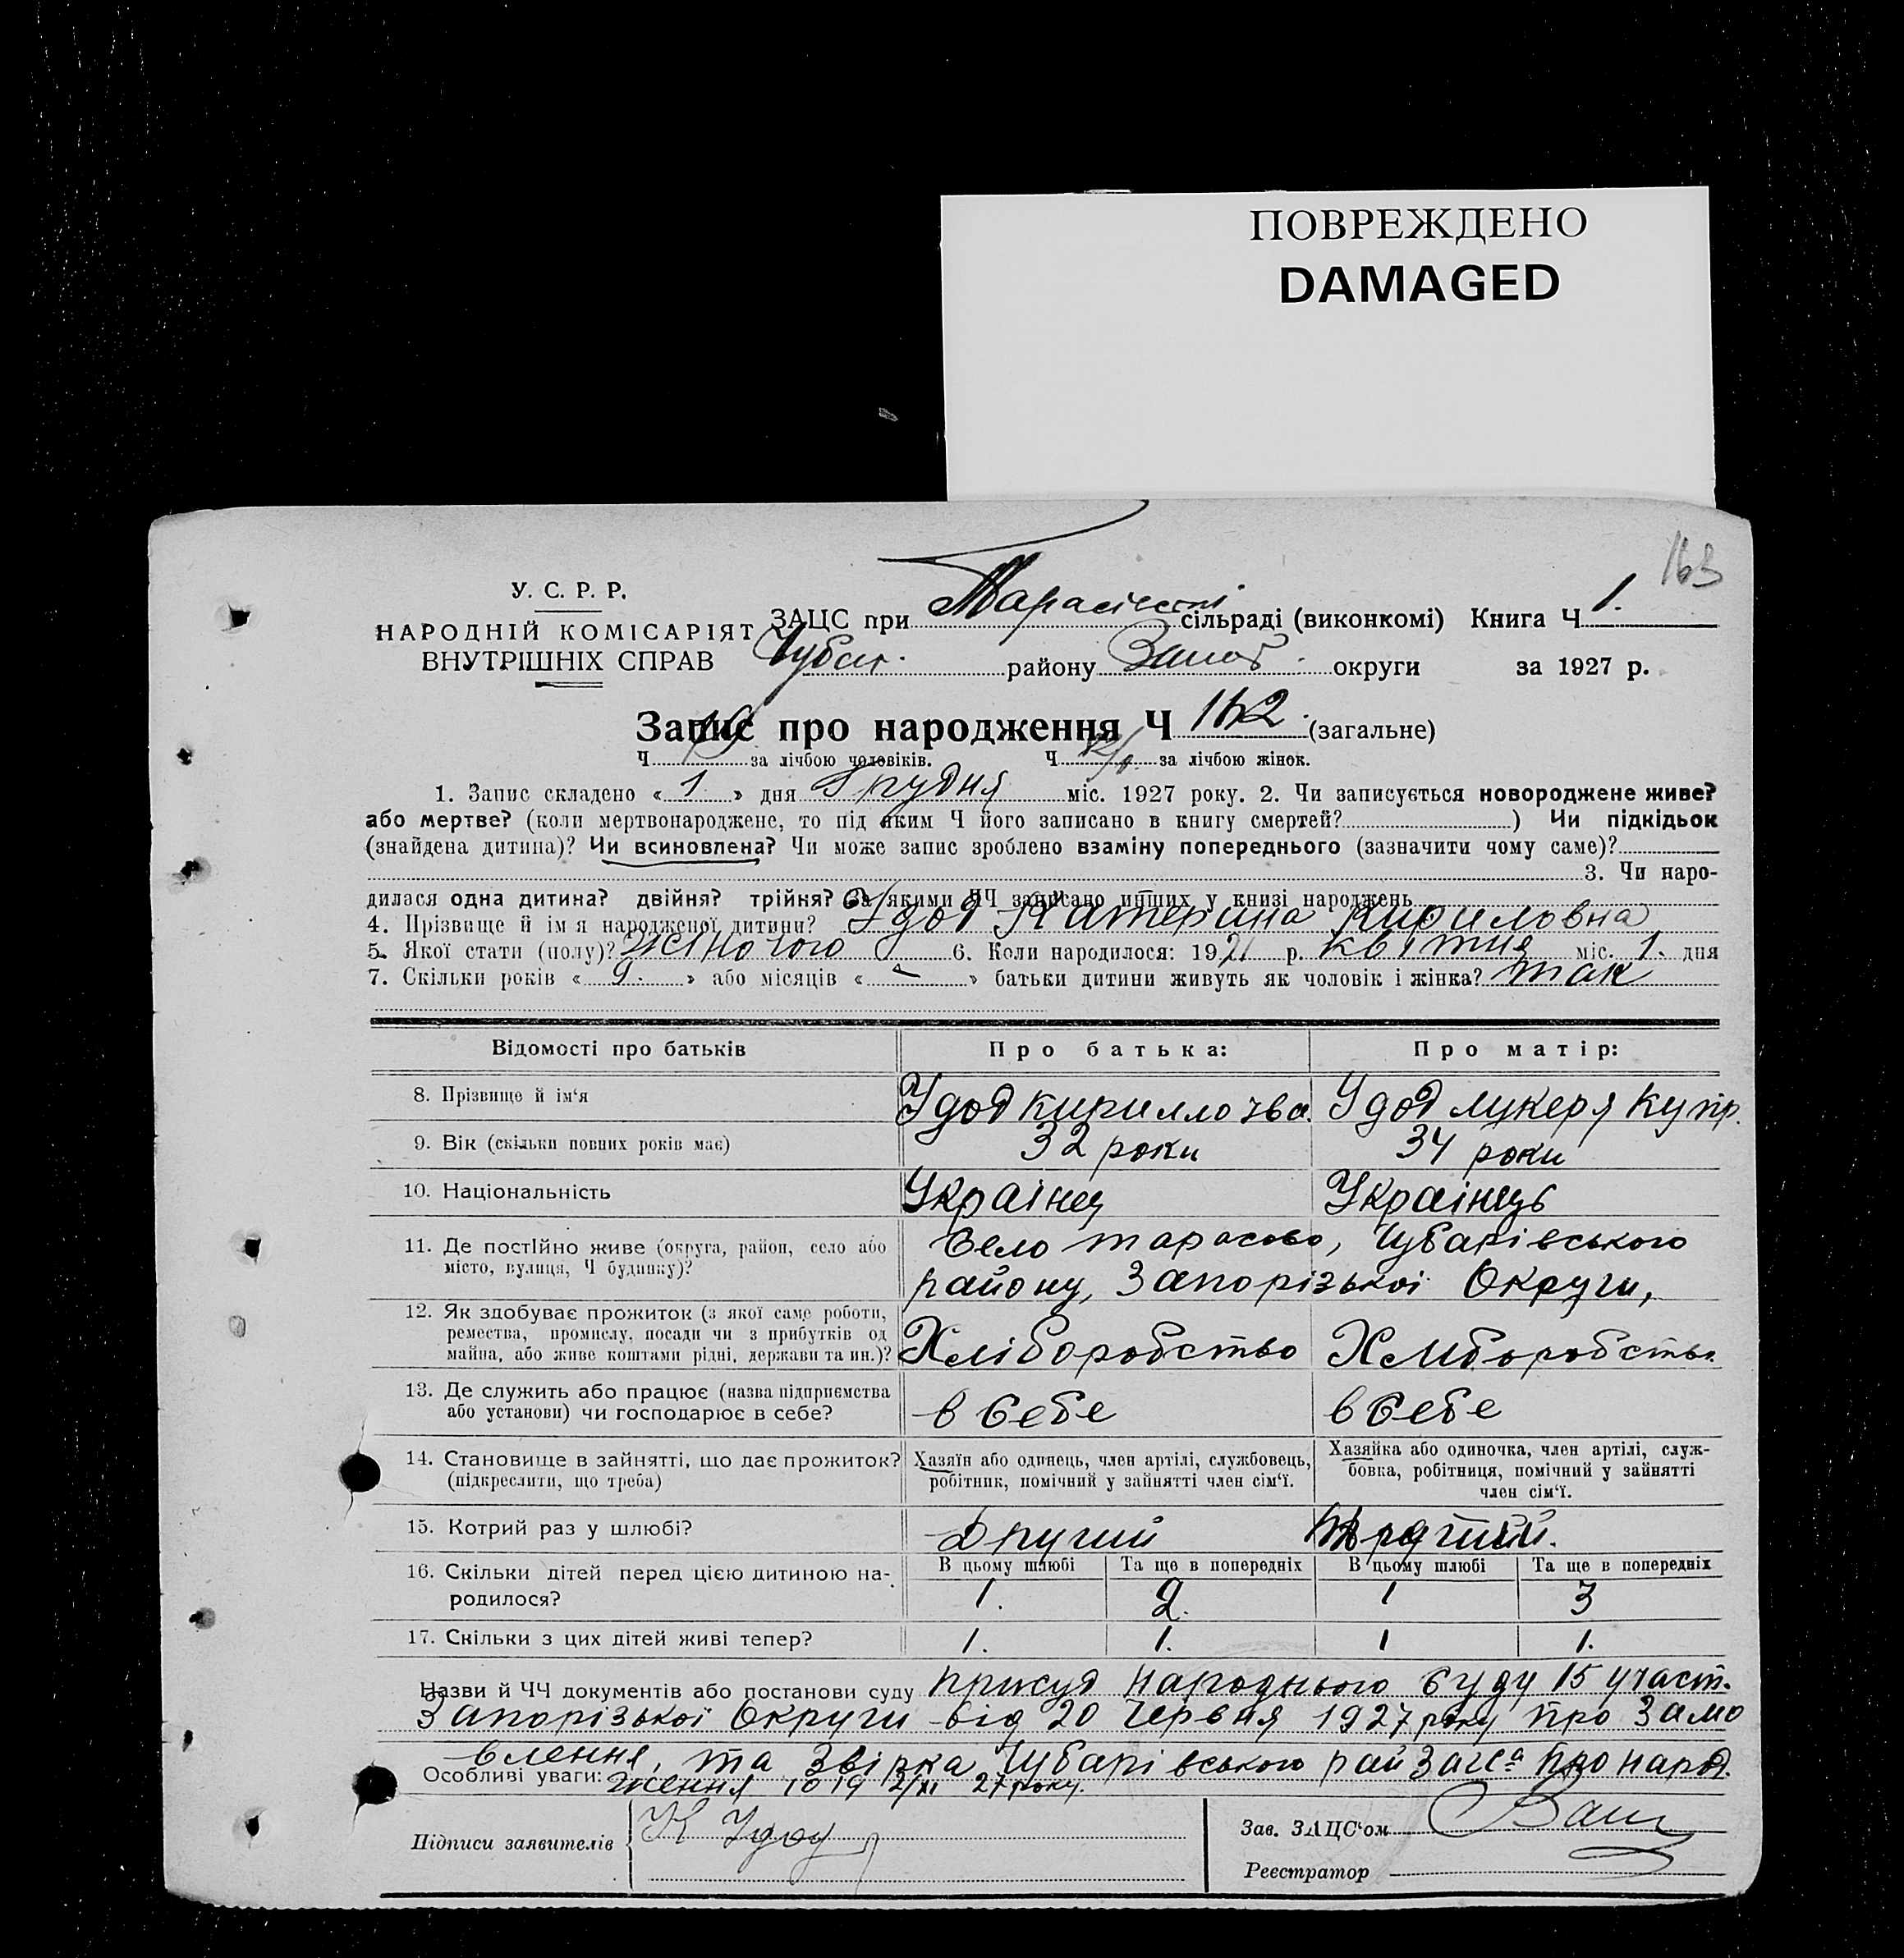 ПОВРЕЖДЕНО
DAMAGED
163
У. С. Р. Р.
НАРОДНІЙ КОМІСАРІЯТ
ВНУТРІШНІХ СПРАВ
ЗАЦС при сільраді (виконкомі) Книга Ч 1.
Чубар. району Запор. округи за 1927 р.
Запис про народження Ч 162. (загальне)
Ч за лічбою чоловіків. Ч за лічбою жінок.
1. Запис складено « 1 » дня Грудня міс. 1927 року. 2. Чи записується новороджене живе?
або мертве? (коли мертвонароджене, то під яким Ч його записано в книгу смертей? ) Чи підкідьок
(знайдена дитина)? Чи всиновлена? Чи може запис зроблено взаміну попереднього (зазначити чому саме)?
3. Чи наро-
дилася одна дитина? двійня? трійня? За якими ЧЧ записано инших у книзі народжень
4. Прізвище й ім я народженої дитини? Удод Катерина Кириловна
5. Якої стати (полу)? жіночого 6. Коли народилося: 1921 р. квітня міс. 1. дня
7. Скільки років « 9. » або місяців « – » батьки дитини живуть як чоловік і жінка? так
Відомості про батьків Про батька: Про матір:
8. Прізвище й ім‘я Удод кирилло іва. Удод лукеря купр.
9. Вік (скільки повних років має) 32 роки 34 роки
10. Національність Украінец Украінець
11. Де постійно живе (округа, район, село або Село тарасово, Чубарівського
місто, вулиця, Ч будинку)? району, Запорізькоі Округи,
12. Як здобуває прожиток (з якої саме роботи,
ремества, промислу, посади чи з прибутків од
майна, або живе коштами рідні, держави та ин.)? Хліборобство Хліборобство
13. Де служить або працює (назва підприємства
або установи) чи господарює в себе? в себе в себе
14. Становище в зайнятті, що дає прожиток? Хазяїн або одинець, член артілі, службовець, Хазяйка або одиночка, член артілі, служ-
(підкреслити, що треба) робітник, помічний у зайнятті член сім‘ї. бовка, робітниця, помічний у зайнятті
член сім‘ї.
15. Котрий раз у шлюбі? Другий
16. Скільки дітей перед цією дитиною на- В цьому шлюбі Та ще в попередніх В цьому шлюбі Та ще в попередніх
родилося? 1. 2. 1 3
17. Скільки з цих дітей живі тепер? 1. 1. 1 1.
Назви й ЧЧ документів або постанови суду присуд Народнього Суду 15 участ.
Запорізькоі Округи від 20 Червня 1927 року про Замо
влення, та Звірка Чубарівського рай Загса про нард.
Особливі уваги: ження 27 року.
Підписи заявителів К Удод Зав. ЗАЦС‘ом
Реєстратор